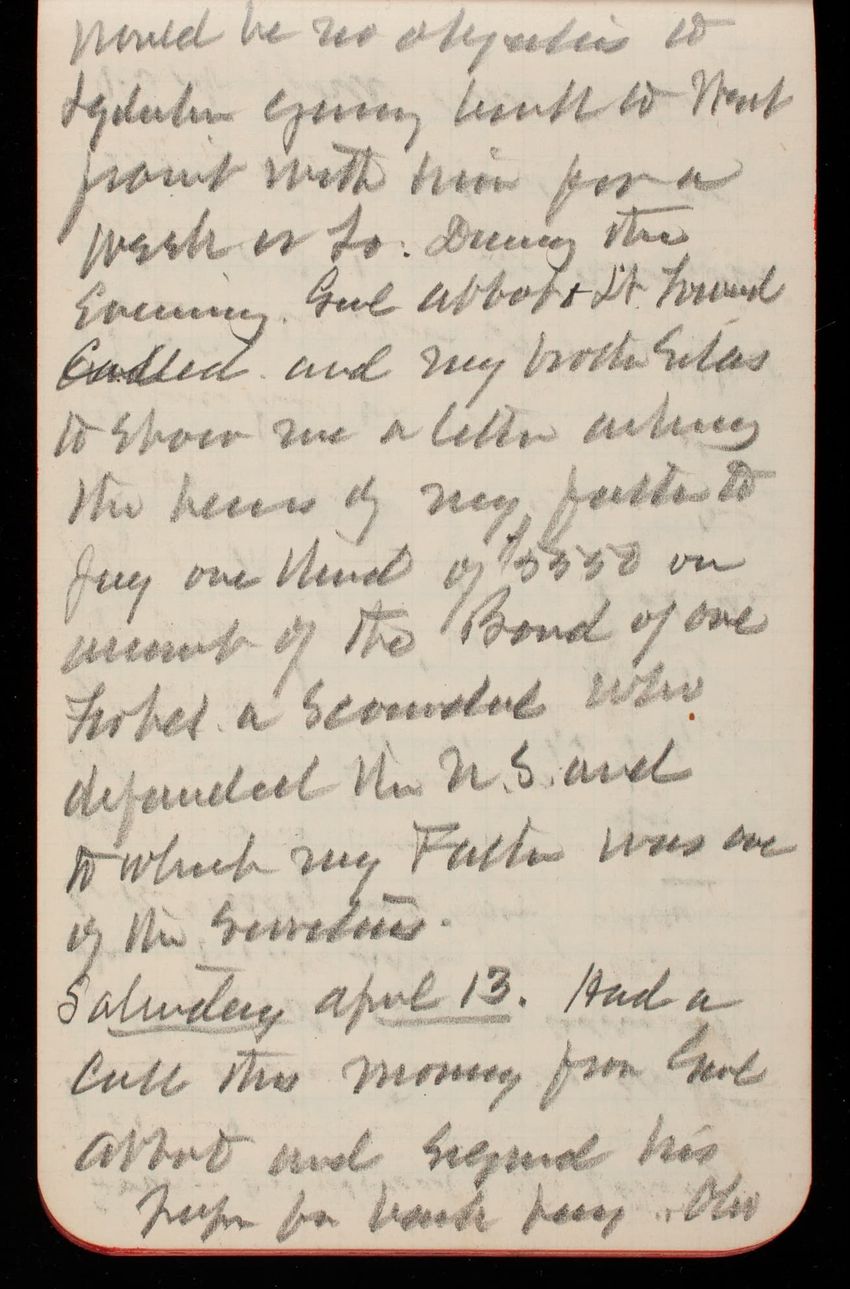 would be no objection to
going back to West
point with him for a
week or so. During the
Evening. Genl Abbot & Lt
Called and my brother Silas
to show me a letter asking
the heirs of my father to
pay one third of $5550 on
account of the Bond of one
Forbes. a Scoundrel who
defrauded the U.S. and
to which my Father was one
of the Securities.
Saturday April 13. Had a
Call this morning from Genl
Abbot and signed his
paper for back pay. Also